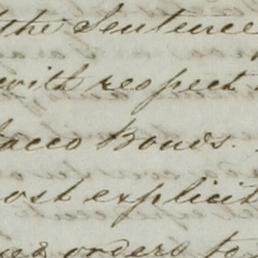 the Sentence
with respect
acco Bonds.
ost explicit
orders to